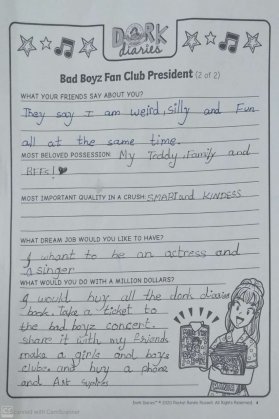 DORK
diaries
Bad Boyz Fan Club President (2 of 2)
WHAT YOUR FRIENDS SAY ABOUT YOU?
They say I am weird, silly and Fun
all at the same time.
MOST BELOVED POSSESSION: My Teddy, Family and
BFFs!
MOST IMPORTANT QUALITY IN A CRUSH: SMART and KINDESS
WHAT DREAM JOB WOULD YOU LIKE TO HAVE?
I whant to be an actress and
a singer
WHAT WOULD YOU DO WITH A MILLION DOLLARS?
I would buy all the dork diaries
book. Take a ticket to
the bad boyz concert.
share it with my Friends
make a girls and boys
clube. and buy a phone
and Art
Dork Diaries™ © 2020 Rachel Renée Russell. All Rights Reserved.
Scanned with CamScanner